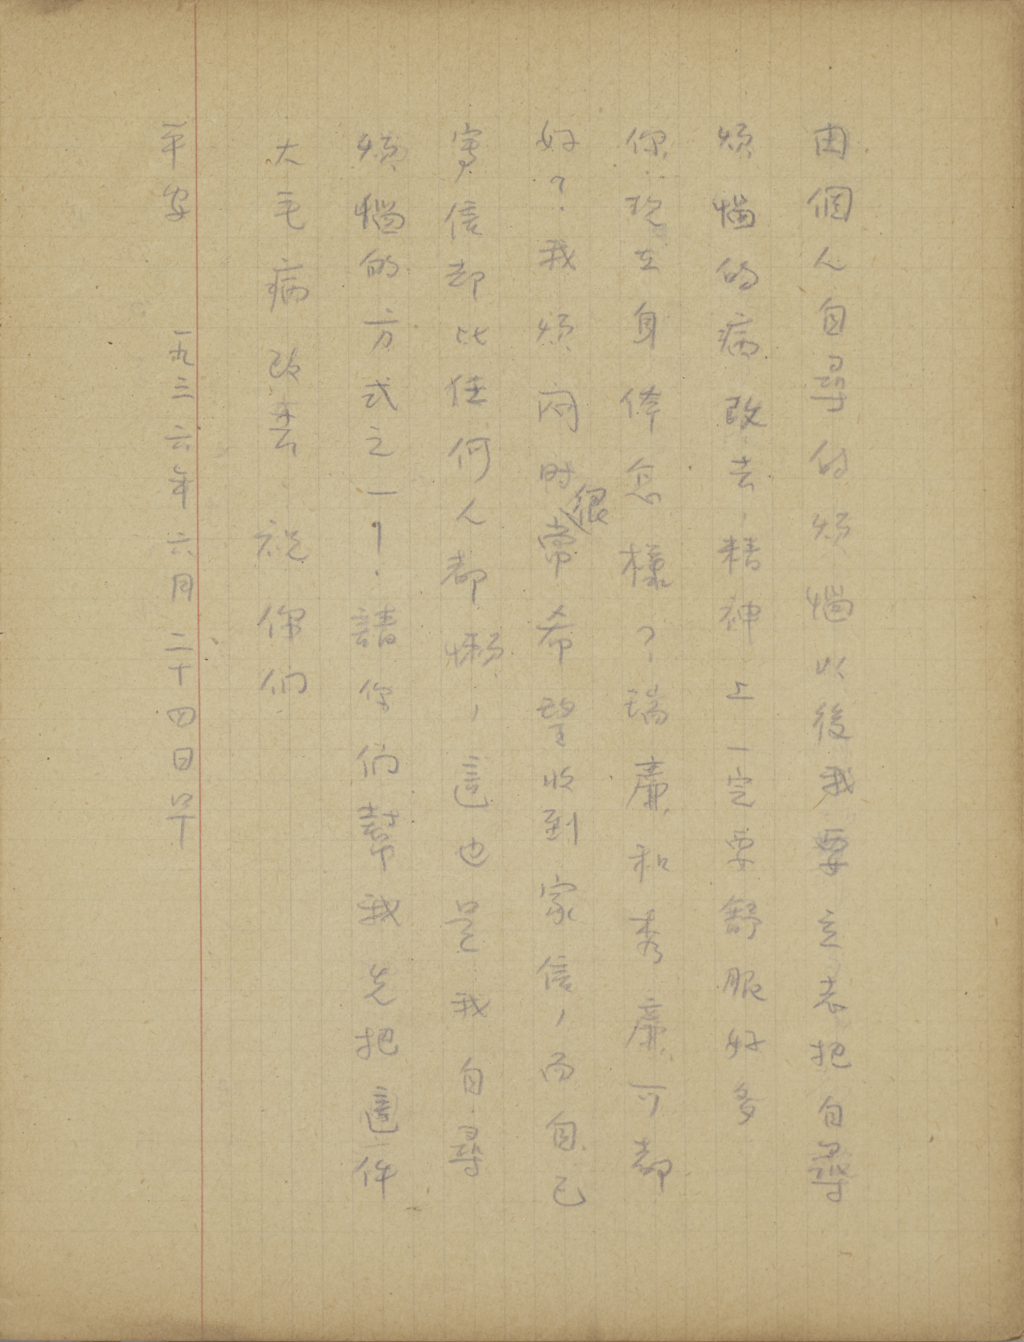 由個人自尋的煩惱以後我要立志把自尋
煩惱的病改去，精神上一定要舒服好多
你現在身体怎樣？瑞廉和秀廉可都
好？我煩闷时很常希望收到家信，而自己
寫信却比任何人都懒，這也是我自尋
煩惱的方式之一！請你们幫我先把這件
大毛病改去 祝你们
平安 一九三六年六月二十四日早